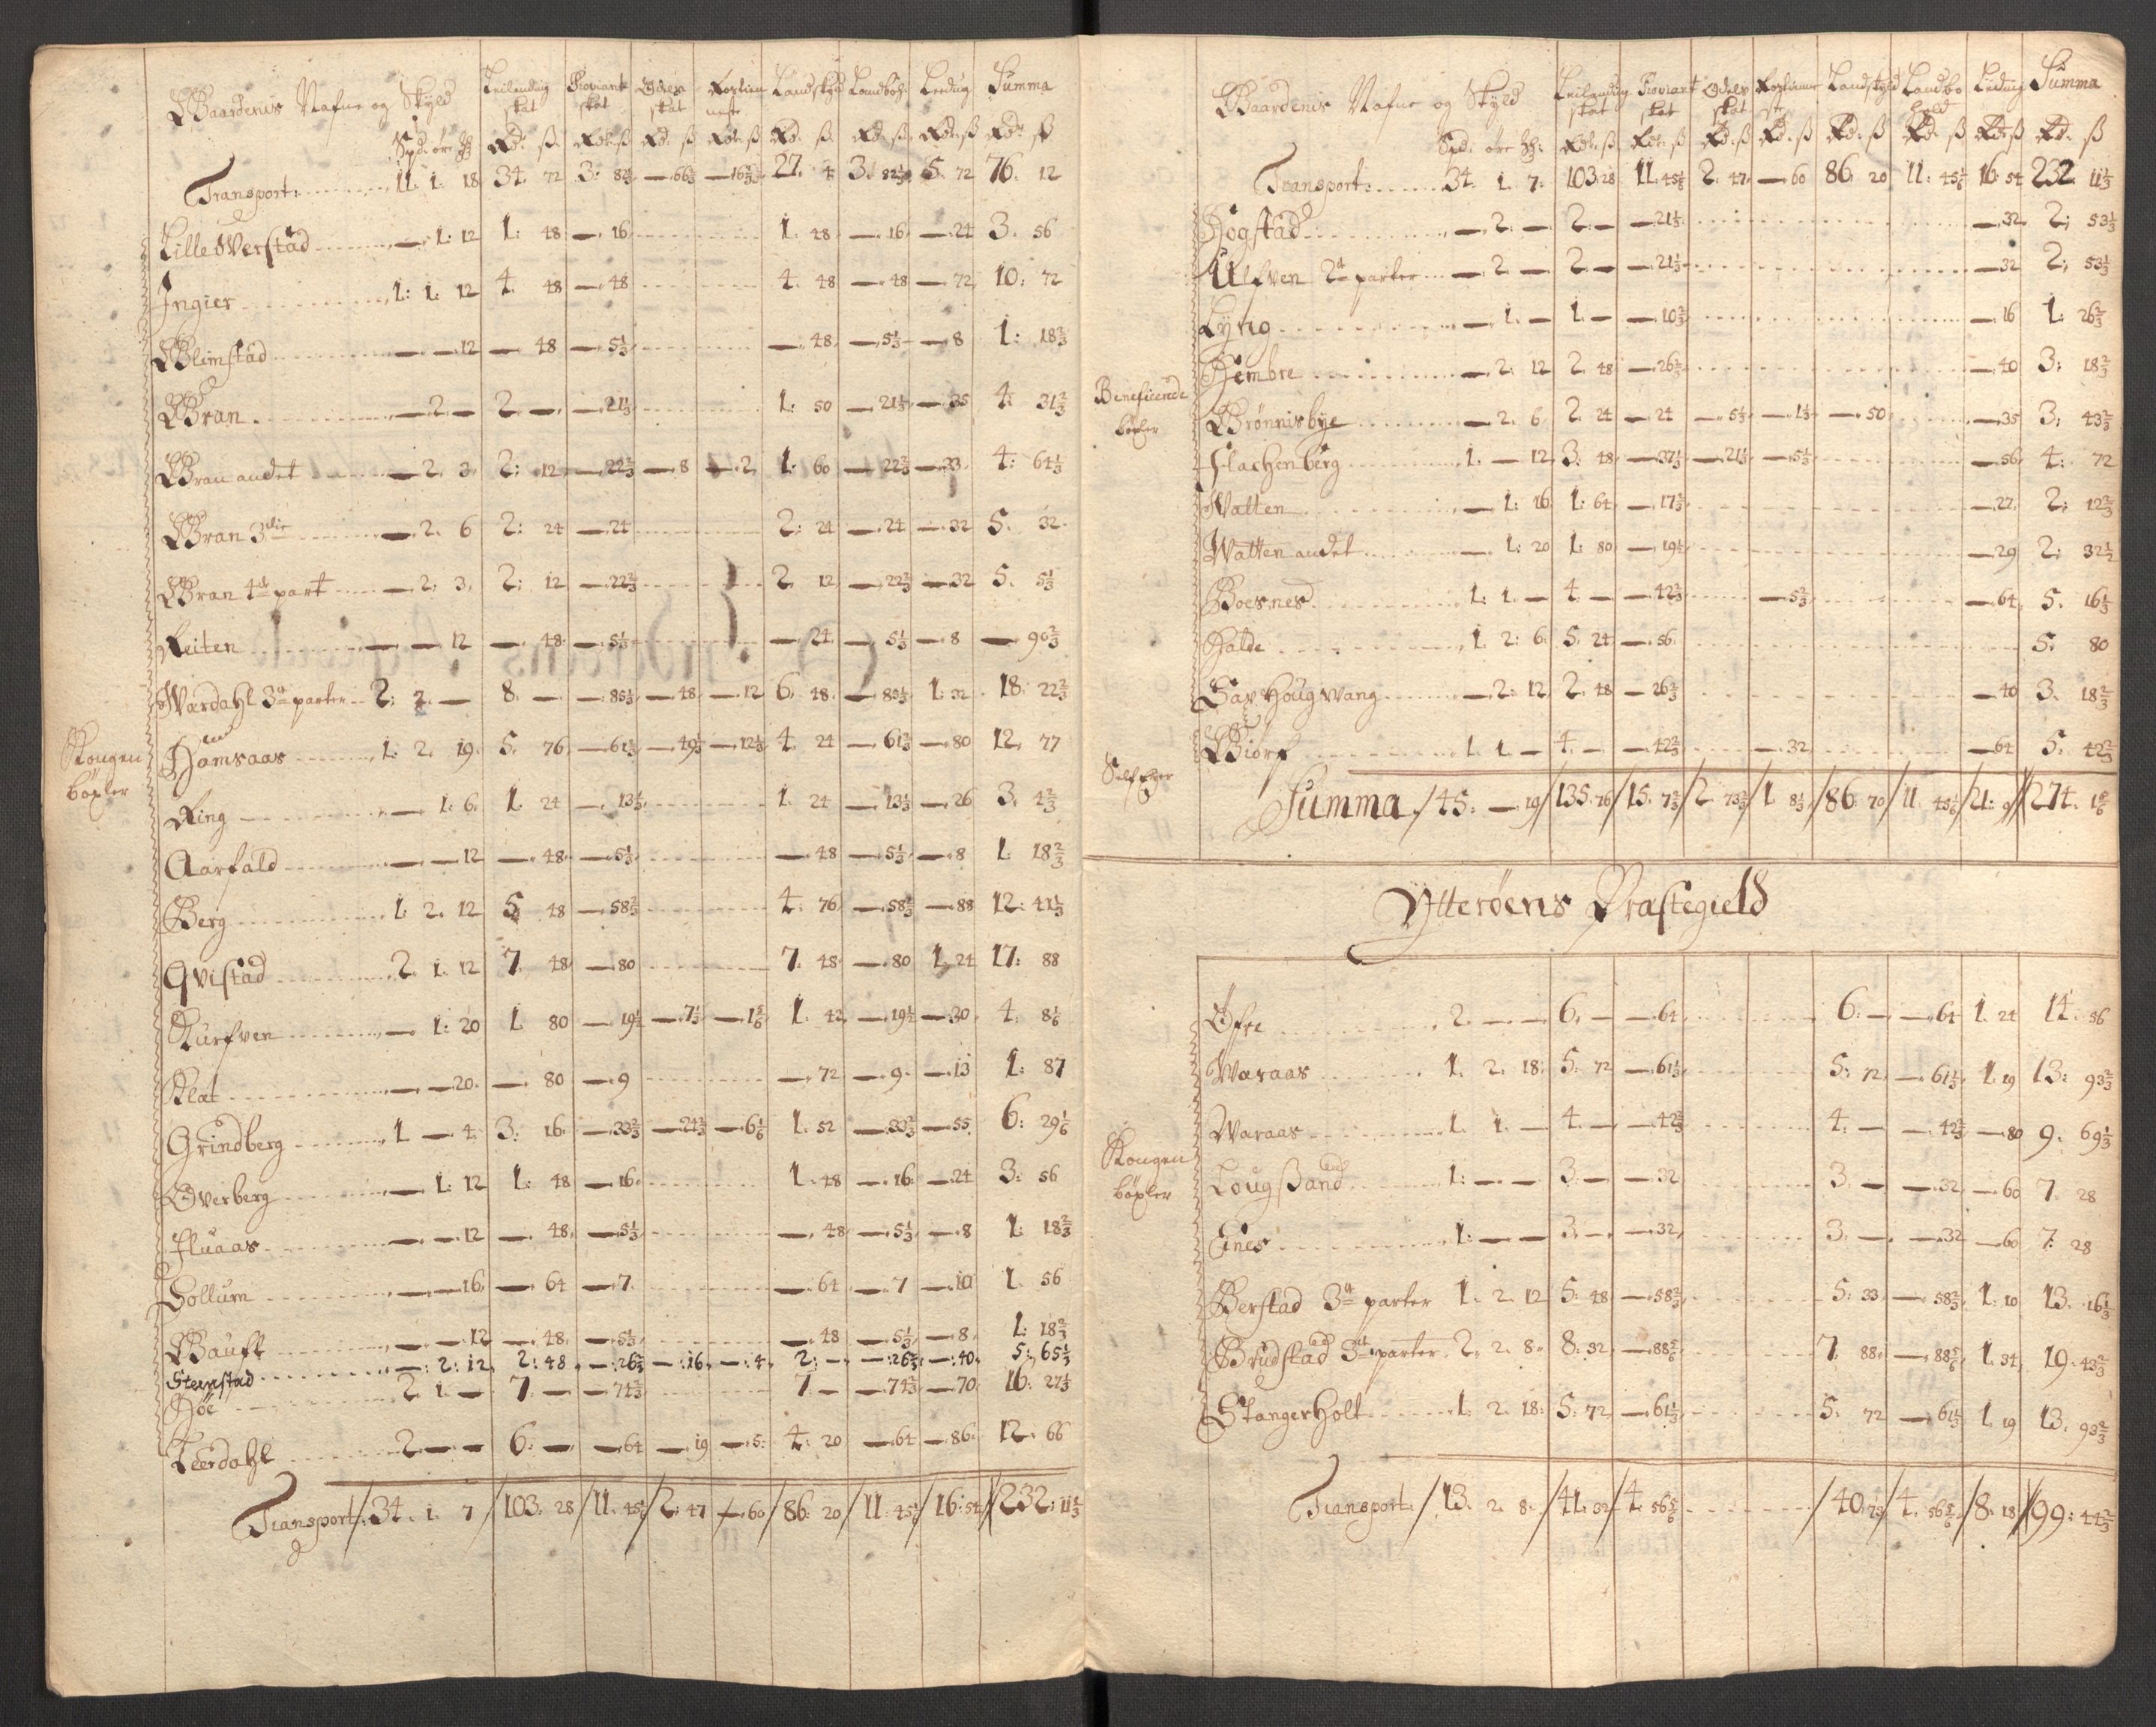 Gaardenis Nafne og Skyld Leilending skat Proviant skat Odels skat Rostien neste Landskyld Landboh. Leeding Summa
Spd. öre Rd. ß Rdr. ß Rd. ß Rdr. ß Rd. ß Rd. ß Rdr. ß Rdr ß
Transport: 11. 1. 18 34. 72 3: 82⅓ — 66⅔ — 16⅔ 27. 4 3. 82⅓ 5. 72 76. 12
Lille Werstad — 1: 12 1: 48 — 16 1. 48 — 16 — 24 3. 56
Ingier 1: 1. 12 4. 48 — 48 4. 48 — 48 — 72 10. 72
Blimstad — — 12 — 48 — 5⅓ — 48 — 5⅓ — 8 1: 18⅔
Gran — 2 — 2. — — 21⅓ 1. 50 — 21⅓ — 35 4. 31⅔
Gran andet — 2. 3. 2: 12 — 22⅔ — 8 — 2 1. 60 — 22⅔ — 33. 4: 64⅓
Gran 3die — 2. 6 2: 24 — 24 2: 24 — 24 — 32 5. 32.
Gran 4de part — 2. 3. 2: 12 — 22⅔ 2. 12 — 22⅔ — 32 5. 5⅓
Reiten — — 12 — 48 — 5⅓ — 24 — 5⅓ — 8 — 90⅔
Wardahl 3de parter 2: 2. — 8. — — 85⅓ — 48 — 12 6. 48. — 85⅓ 1: 32 18: 22⅔
Kongen böxler
Hamsaas 1: 2. 19. 5. 76 — 61⅔ — 49⅓ — 12⅓ 4. 24 — 61⅔ — 80 12. 77
Ring — 1: 6. 1. 24 — 13⅓ 1. 24 — 13⅓ — 26 3. 4⅔
Aarfald — — 12 — 48 — 5⅓ — 48 — 5⅓ — 8 1. 18⅔
Berg 1. 2. 12 5. 48 — 58⅔ 4. 76 — 58⅔ — 88 12: 41⅓
Qvistad 2. 1. 12 7. 48 — 80 7. 48 — 80 1. 24 17: 88
Kurfven — 1: 20 1. 80 — 19½ — 7⅓ — 1⅚ 1. 42 — 19½ — 30. 4. 8⅙
Klat — — 20. — 80 — 9 — 72 — 9. — 13 1: 87
Grindberg 1 — 4. 3: 16. — 33⅔ — 24⅔ — 6⅙ 1. 52 — 33⅔ — 55. 6: 29⅙
Overberg — 1: 12 1: 48 — 16. 1. 48 — 16. — 24 3: 56
Fluaas — — 12 — 48. — 5⅓ — 48 — 5⅓ — 8 1: 18⅔
Sollum — — 16. — 64 — 7. — 64 — 7 — 10 1. 56
Bauft — — 12 — 48. — 5⅓ — 48 — 5⅓ — 8. 1: 18⅔
Steenstad — 2: 12. 2: 48. — 26⅔ — 16. — 4. 2: — — 26⅔ — 40. 5: 65⅓
Höe 2. 1. — 7. — — 74⅔ 7. — — 74⅔ — 70. 16: 27⅓
Leerdahl 2. — — 6: — — 64 — 19 — 5: 4: 20 — 64 — 86. 12. 66
Transport: 34. 1. 7 103. 28 11. 45⅙ 2: 47 — 60 86: 20 11. 45⅙ 16: 54 232: 11⅓
Gaardenis Nafne og Skyld Leilending skat Proviant skat Odels skat Rostienneste Landskyld Landbohold Leding Summa
Spd. öre Rdr. ß Rdr. ß Rd. ß Rd. ß Rd. ß Rd. ß Rdr ß Rd. ß
Transport: 34. 1. 7. 103. 28 11. 45⅙ 2. 47. — 60 86. 20 11: 45⅙ 16: 54 232. 11⅓
Högstad — 2. — 2. — — 21⅓ — 32 2; 53⅓
Ulfven 2de parter — 2 — 2. — — 21⅓ — 32 2; 53⅓
Lyng — 1. — 1. — — 10⅔ — 16 1. 26⅔
Hembre — 2. 12 2. 48 — 26⅔ — 40 3; 18⅔
Beneficerede böxler
Brønnisbye — 2. 6. 2. 24 — 24 — 5⅓ — 1⅓ — 50 — 35 3; 43⅔
Flachenberg 1. — 12 3. 48 — 37⅓ — 21⅓ — 5⅓ — 56. 4: 72
Watten — 1: 16 1: 64 — 17⅔ — 27. 2; 12⅔
Watten andet — 1: 20 1. 80 — 19½ — 29 2; 32½
Boesnes 1: 1. — 4. — — 42⅔ — 5⅔ — 64. 5. 16⅓
Halde 1. 2: 6. 5. 24 — 56. 5. 80
Sax Hougwang — 2: 12 2. 48 — 26⅔ — 40 3. 18⅔
Self Eger
Biørf 1. 1. — 4. — — 42⅔ — 32 — 64 5. 42⅔
Summa 45: — 19 135. 76 15. 7⅔ 2. 73⅔ 1. 8⅓ 86. 70 11. 45⅙ 21: 274. 1⅚
Ytterøens Præstegield
Øfre 2. — — 6. — — 64 6: — — 64 1. 24 14. 56
Waraas 1. 2. 18. 5: 72 — 61⅓ 5: 72 — 61⅓ 1. 19 13: 93⅔
Waraas 1. 1. — 4. — — 42⅔ 4: — — 42⅔ — 80 9. 69⅓
Kongen böxler
Lougßand 1: — — 3. — — 32 3. — — 32 — 60 7. 28
Eines 1: — — 3. — — 32 3. — — 32 — 60 7: 28
Berstad 3de parter 1. 2. 12 5: 48 — 58⅔ 5: 33 — 58⅔ 1: 10 13. 16⅓
Brudstad 3de parter 2. 2. 8. 8: 32 — 88⅚ 7. 88. — 88⅚ 1. 34. 19. 43⅔
Stangerholt 1. 2. 18: 5. 72 — 61⅓ 5. 72 — 61⅓ 1. 19 13. 93⅔
Transport: 13. 2. 8. 41: 32 4. 56⅚ 40. 73 4. 56⅚ 8. 18 99: 44⅔